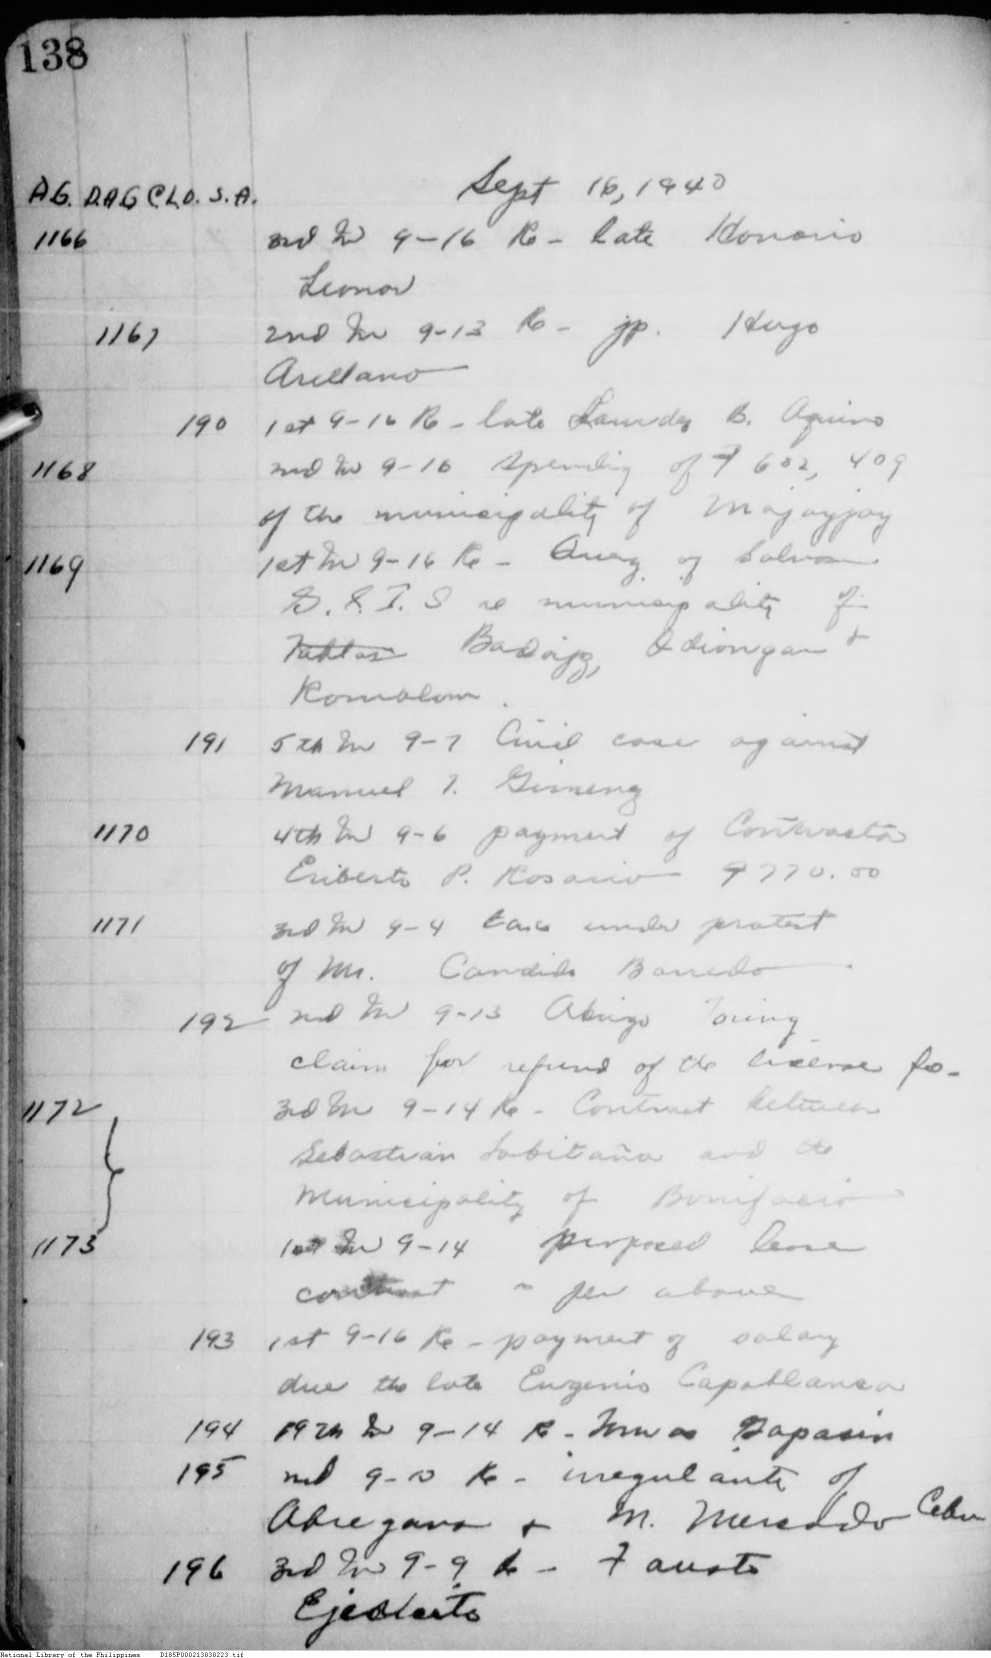 138
Sept 16, 1940
A.G. D.A.G C.L.O. S.A.
1166 3rd In 9-16 Re - late Honorio
Leonor
1167 2nd In 9-13 Re - jp. Hugo
Arellano
190 1st 9-16 Re - late Lourdes B. Aquino
1168 2nd In 9-16 Spending of ₱ 602,409
of the municipality of Majayjay
1169 1st In 9-16 Re - of
G.S.I.S re municipality of
Badajoz, Odiongan +
Romblon.
191 5th In 9-7 Civil case against
Manuel T. Gimeng
1170 4th In 9-6 payment of Contractor
Eriberto P. Rosario ₱770.00
1171 3rd In 9-4 under protest
of Mr. Candido Barredo
192 2nd In 9-13
claim for refund of the license fee.
1172 3rd In 9-14 Re - Contract between
Sebastian Labitaña and the
Municipality of Bonifacio
1173 1st In 9-14 proposed lease
contract " per above
193 1st 9-16 Re - payment of salary
due the late Eugenio Capablanca
194 19th In 9-14 Re - Tomas Gapasin
195 2nd 9-10 Re - of
+ M. Mercado Cebu
196 3rd In 9-9 Re - Fausto
National Library of the Philippines D185P000213838223.tif